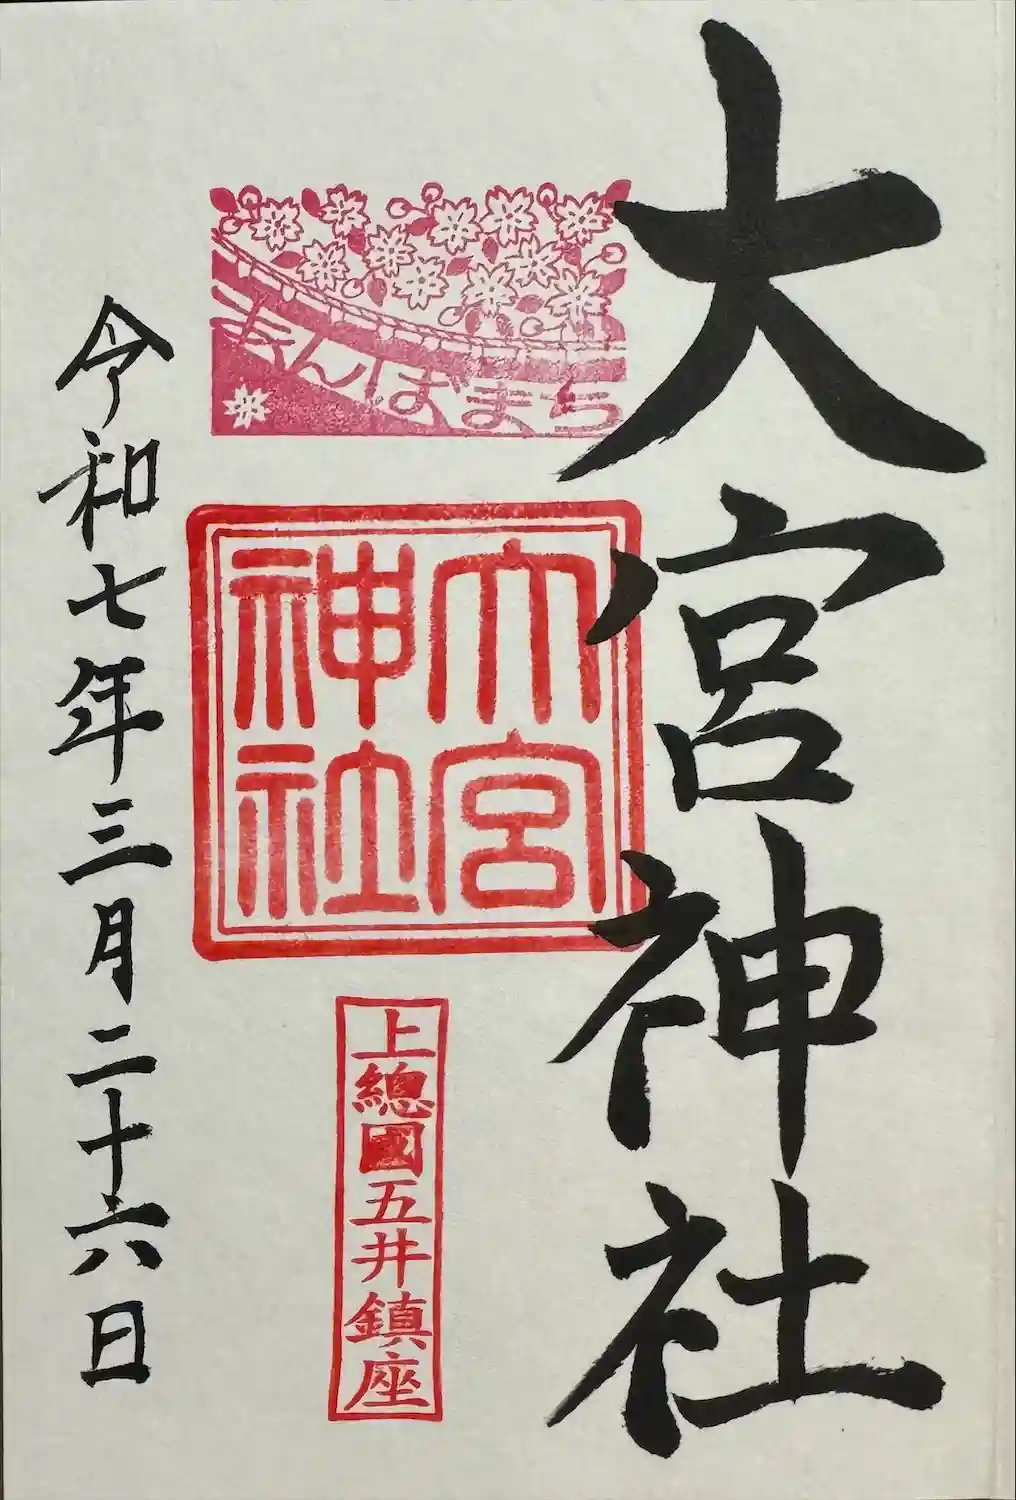 大宮神社
大宮
神社
上總國五井鎮座
令和七年三月二十六日